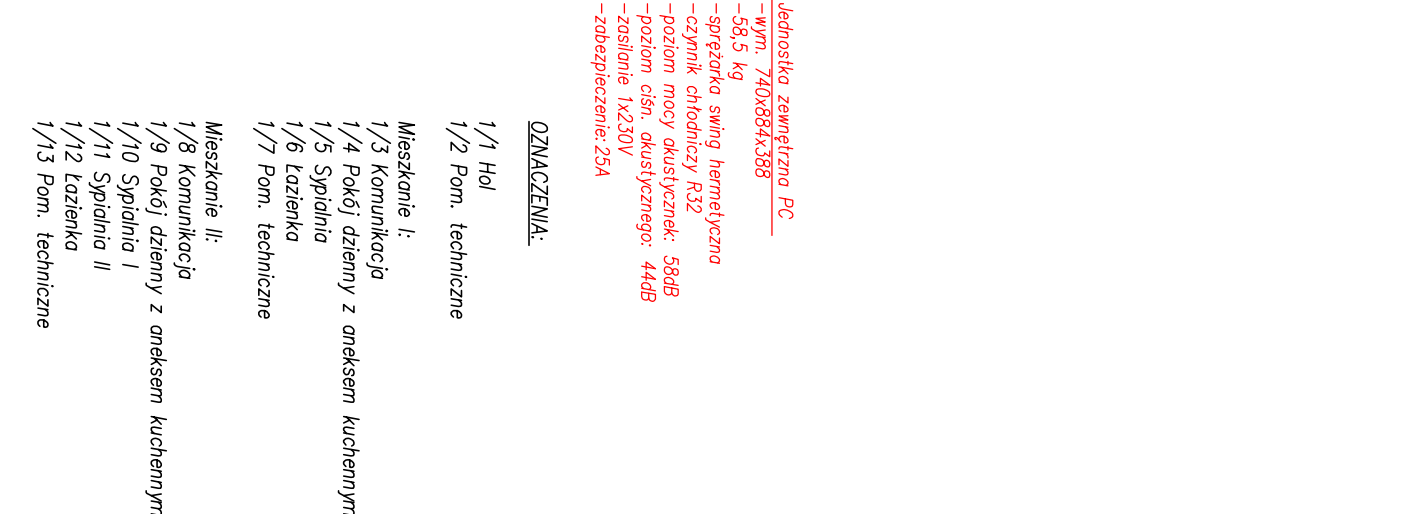 Jednostka zewnętrzna PC
-wym. 740x884x388
-58,5 kg
-sprężarka swing hermetyczna
-czynnik chłodniczy R32
-poziom mocy akustycznek: 58dB
-poziom ciśn. akustycznego: 44dB
-zasilanie 1x230V
-zabezpieczenie: 25A
OZNACZENIA:
1/1 Hol
1/2 Pom. techniczne
Mieszkanie I:
1/3 Komunikacja
1/4 Pokój dzienny z aneksem kuchennym
1/5 Sypialnia
1/6 Łazienka
1/7 Pom. techniczne
Mieszkanie II:
1/8 Komunikacja
1/9 Pokój dzienny z aneksem kuchennym
1/10 Sypialnia I
1/11 Sypialnia II
1/12 Łazienka
1/13 Pom. techniczne